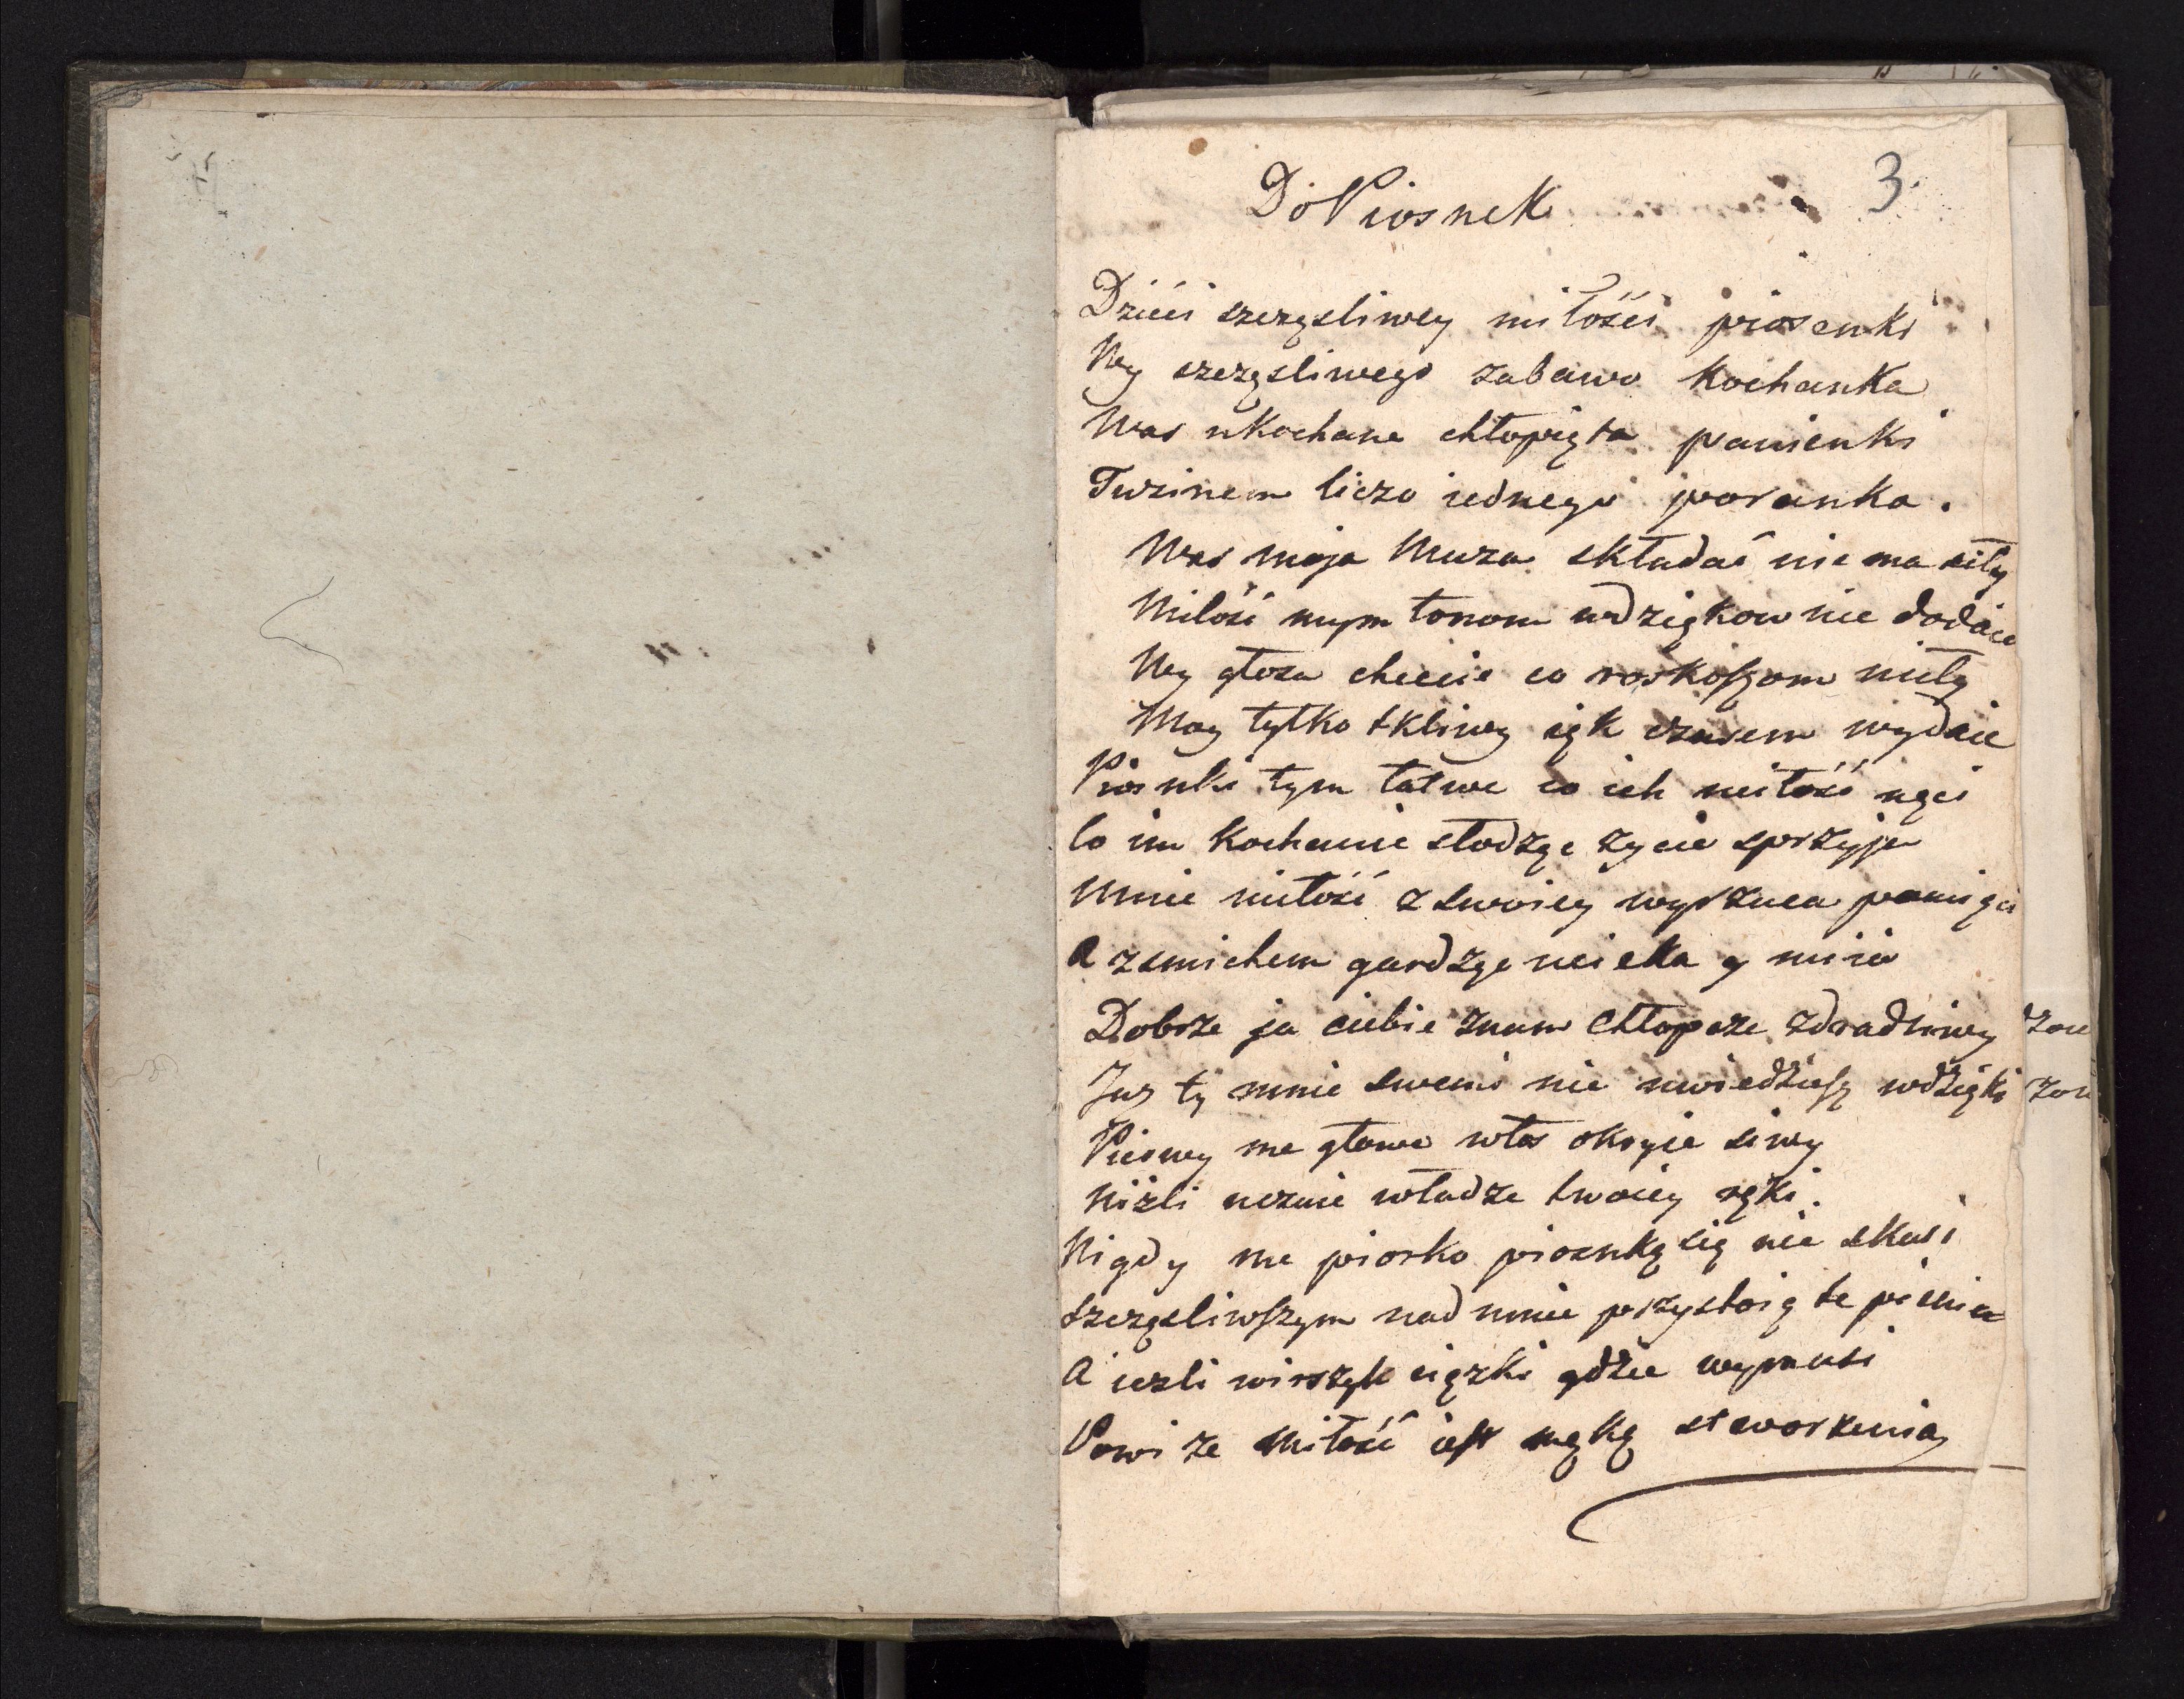 3.
Do Piosnek
Dzieci szczęsliwey miłości piosenki
Wy szczęsliwego zabawo kochanka
Was ukochane chłopięta panienki
Tuzinem liczo iednego poranka.
Was moja Muza składać nie ma siły
Miłość mym tonom wdziękow nie dodaie
Wy głosu chcecie co roskoszom miły
Moy tylko tkliwy ięk czasem wydaie
Piosnki tym łatwe co ich miłość nęci
Co im kochanie słodząc życie sprzyja
Mnie miłość z swoiey wyrzuca pamięci
A z smiechem gardząc ucieka y miia
Dobrze ja ciebie znam Chłopcze zdradliwy
Juz ty mnie swemi nie uwiedziesz wdzięki
Pierwey me głowe włos okryie siwy
Niżli uczuie władze twoiey ręki.
Nigdy me piorko piosnką się nie skusi
Szczęsliwszym nad mnie przystoią te pienia
A iezli wirszyk cięzki gdzie wymusi
Powi ze miłość iest męką stworzenia